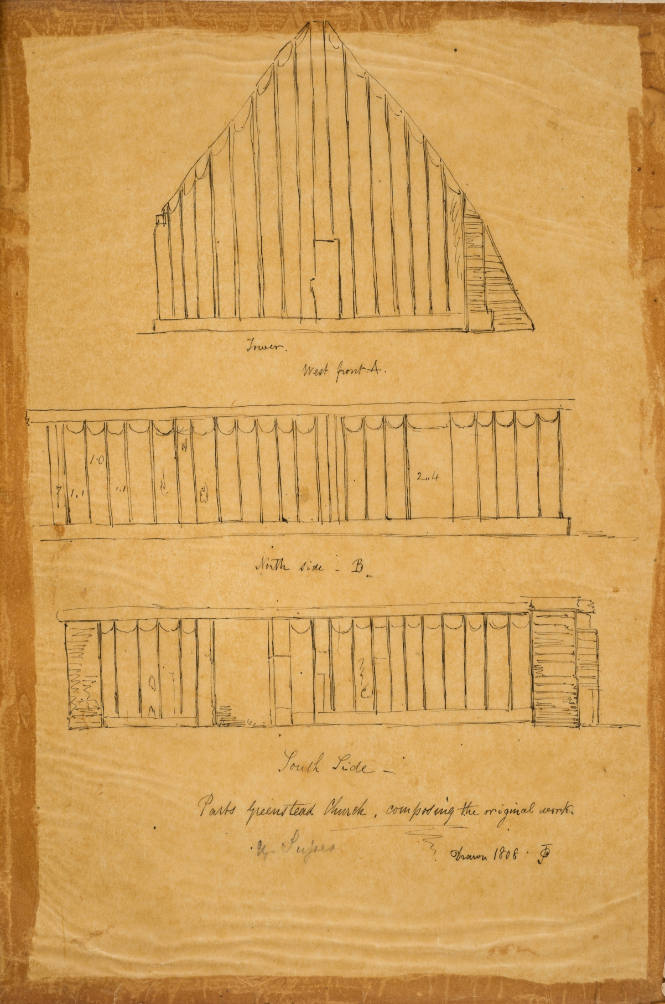 Tower.
West front A.
7
1.1
1.0
1.1
2.4
North side - B
South Side -
Parts Greenstead Church, composing the original work.
Drawn 1808.